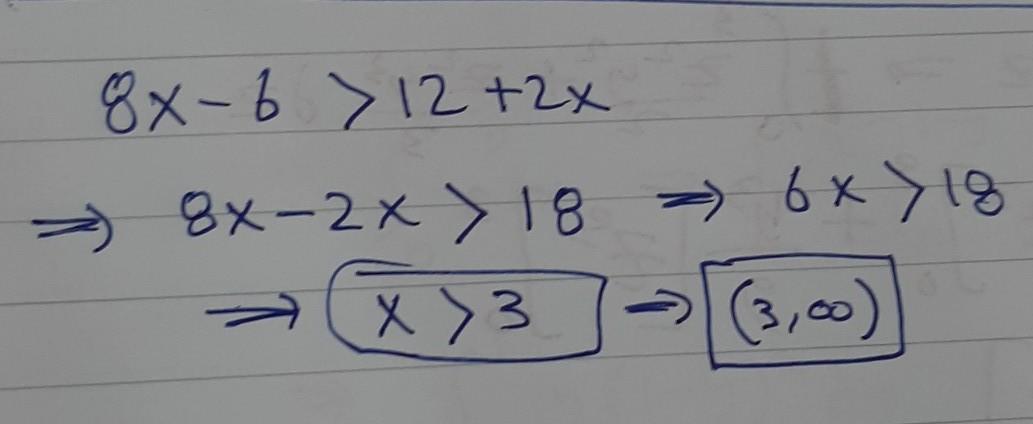 8x - 6 > 12 + 2x
⇒ 8x - 2x > 18 ⇒ 6x > 18
⇒ x > 3 ⇒ (3, ∞)